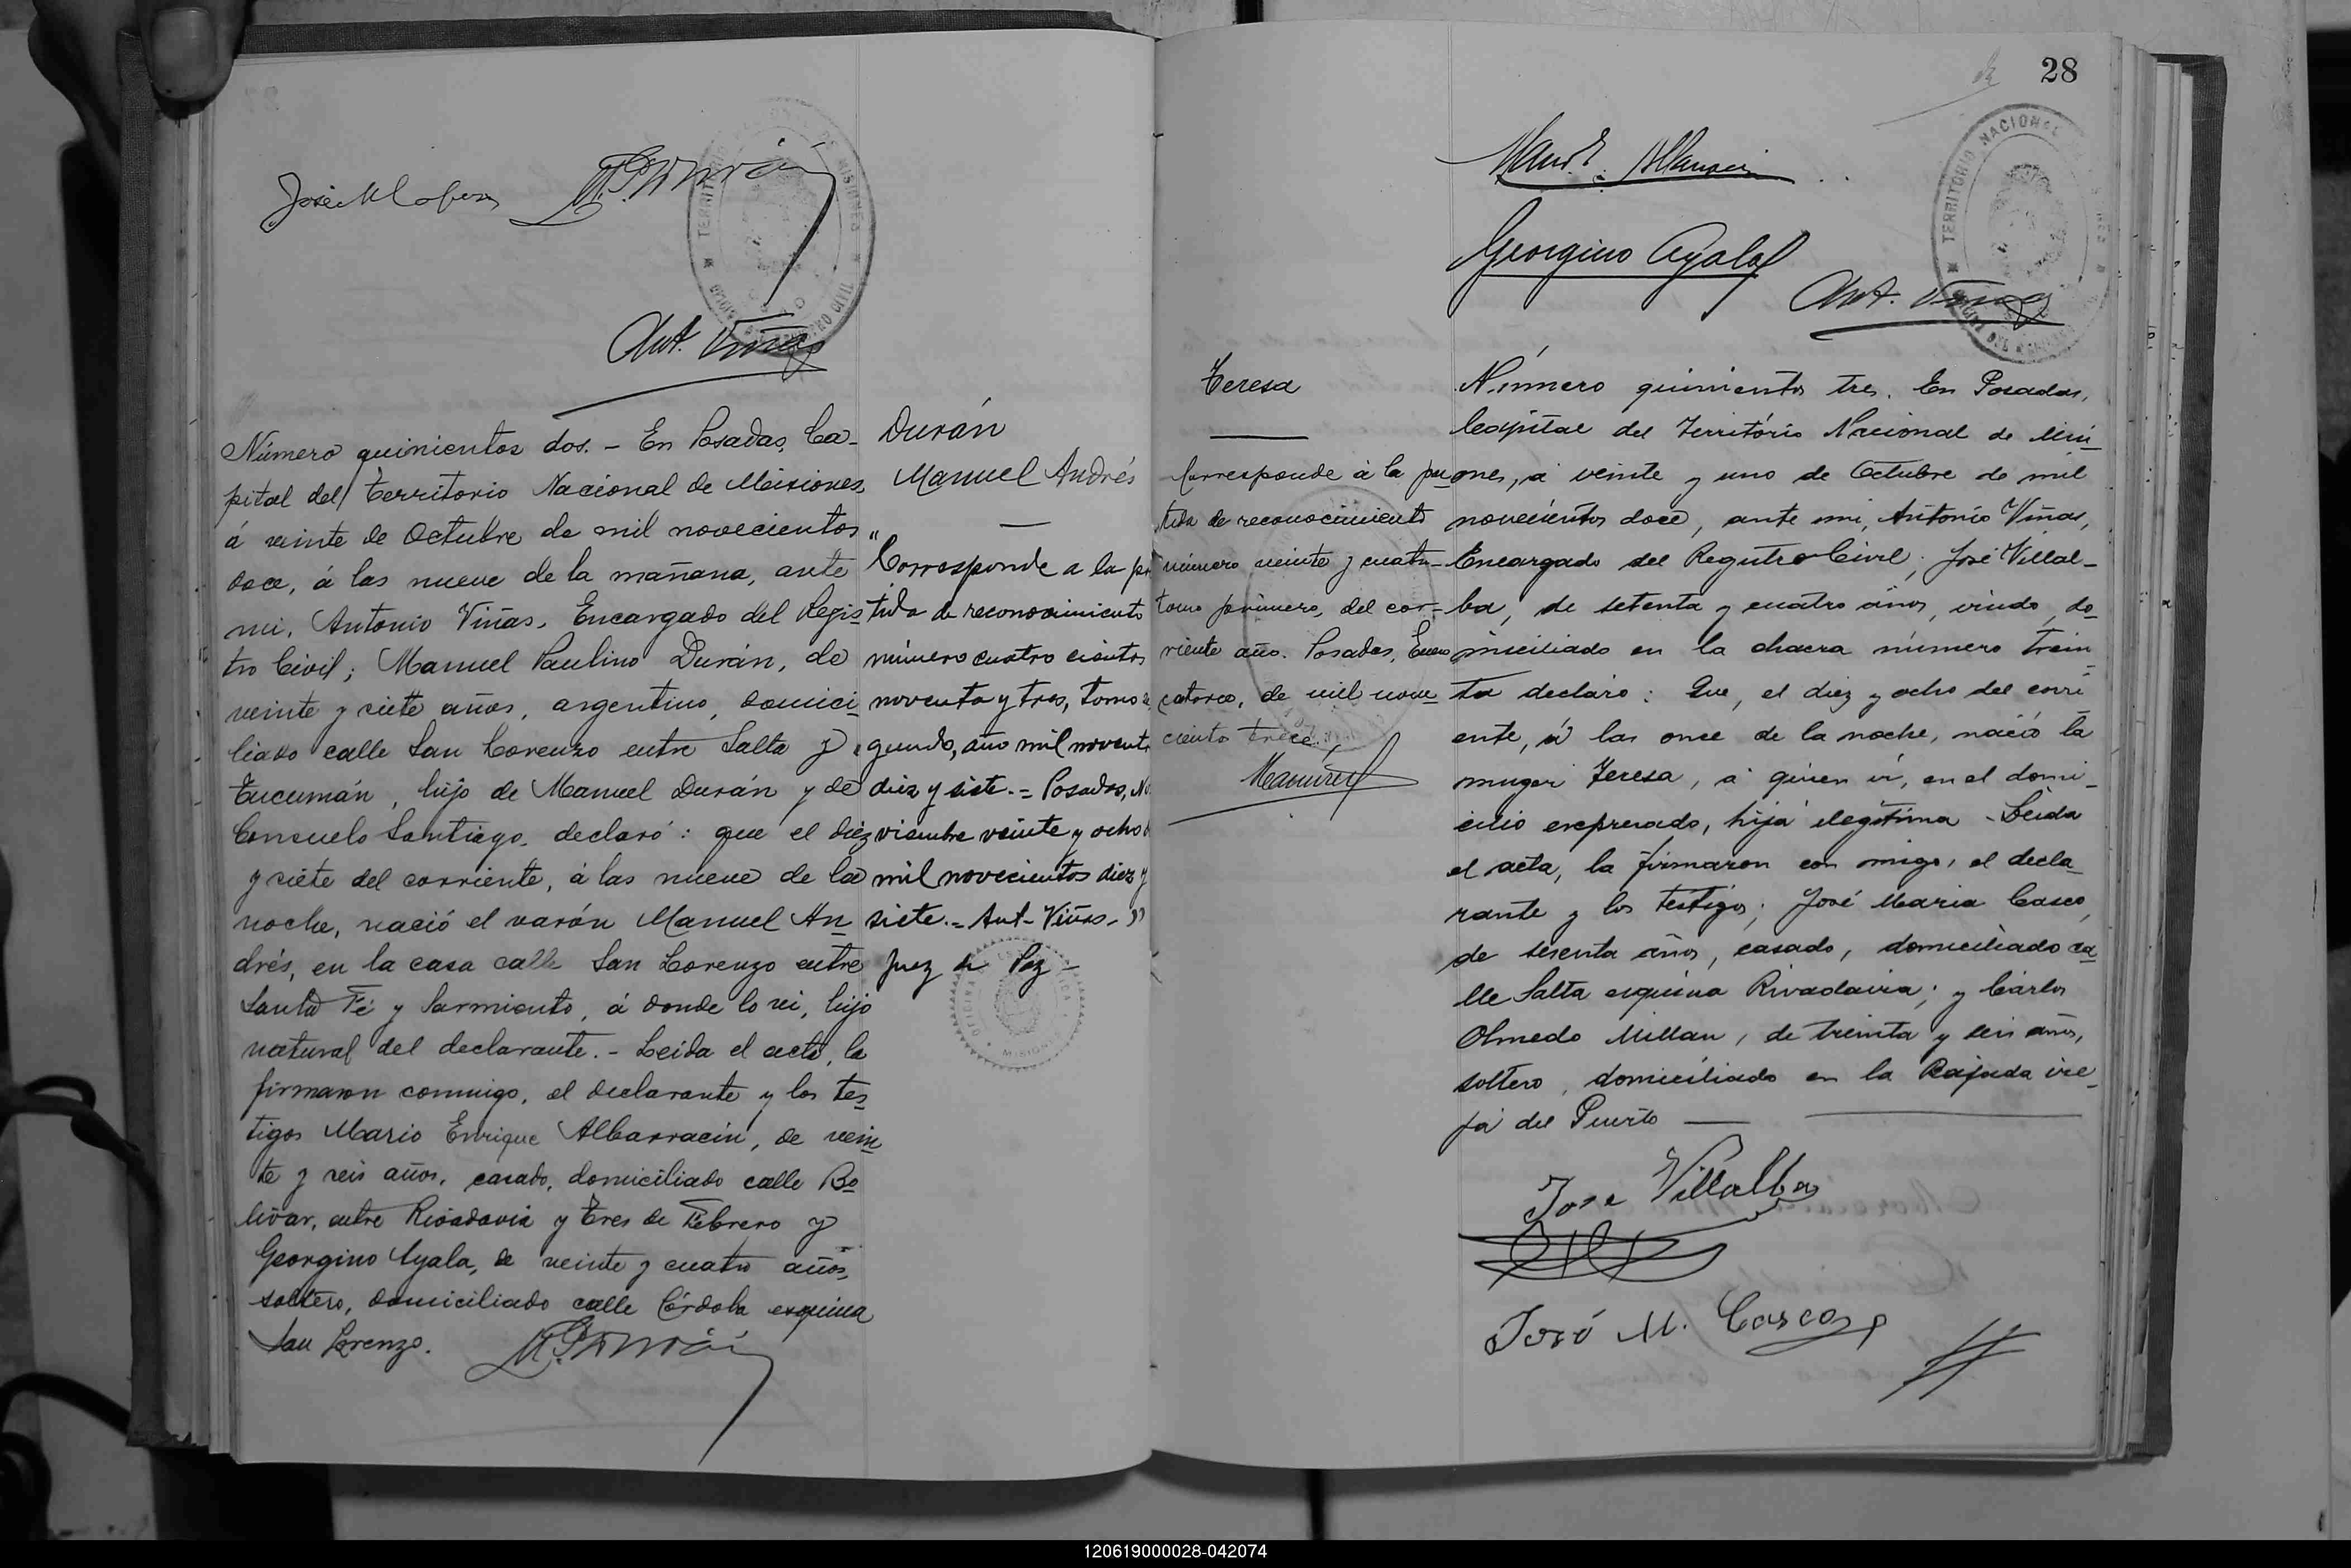 José M Lopez
TERRITORIO
MISIONES
Ant. Viñas
Número quinientos dos. - En Posadas, Ca-
pital del Territorio Nacional de Misiones,
á veinte de Octubre de mil novecientos
doce, á las nueve de la mañana, ante
mi, Antonio Viñas, Encargado del Regis-
tro Civil; Manuel Paulino Durán, de
veinte y siete años, argentino, domici-
liado calle San Lorenzo entre Salta y
Tucumán, hijo de Manuel Durán y de
Consuelo Santiago, declaró: que el diez
y siete del corriente, á las nueve de la
noche, nació el varón Manuel An-
drés, en la casa calle San Lorenzo entre
Santa Fé y Sarmiento, á donde lo vi, hijo
natural del declarante. - Leida el acta, la
firmaron conmigo, el declarante y los tes-
tigos Mario Enrique Albarracin, de vein-
te y seis años, casado, domiciliado calle Bo-
livar, entre Rivadavia y Tres de Febrero y
Georgino Ayala, de veinte y cuatro años,
soltero, domiciliado calle Córdoba esquina
San Lorenzo.
Durán
Manuel Andrés
"Corresponde a la par
tida de reconocimiento
número cuatro cientos
noventa y tres, tomo se
gundo, año mil novecient
diez y siete. = Posadas, No
viembre veinte y ocho d
mil novecientos diez y
siete. = Ant- Viñas - "
Juez de Paz -
28
Georgino Ayala
TERRITORIO NACIONAL
Ant. Viñas
Teresa
Corresponde à la par-
tida de reconocimiento
número veinte y cuatro-
tomo primero, del cor-
riente año. Posadas, Enero
catorce, de mil nove-
ciento trece.
Número quinientos tres. En Posadas,
Capital del Território Nacional de Misi-
ones, á veinte y uno de Octubre de mil
novecientos doce, ante mi, Antonio Viñas,
Encargado del Registro Civil; José Villal-
ba, de setenta y cuatro años, viudo, do-
miciliado en la chacra número trein-
ta declaro: Que, el diez y ocho del corri-
ente, á las once de la noche, nació la
muger Teresa, a quien vi, en el domi-
cilio expresado, hija ilegítima - Leida
el acta, la firmaron con migo, el decla-
rante y los testigos; José Maria Casco,
de sesenta años, casado, domiciliado ca-
lle Salta esquina Rivadavia; y Cárlos
Olmedo Millan, de treinta y seis años,
soltero, domiciliado en la Bajada vie-
ja del Puerto
Jose Villalba
José M. Casco
120619000028-042074